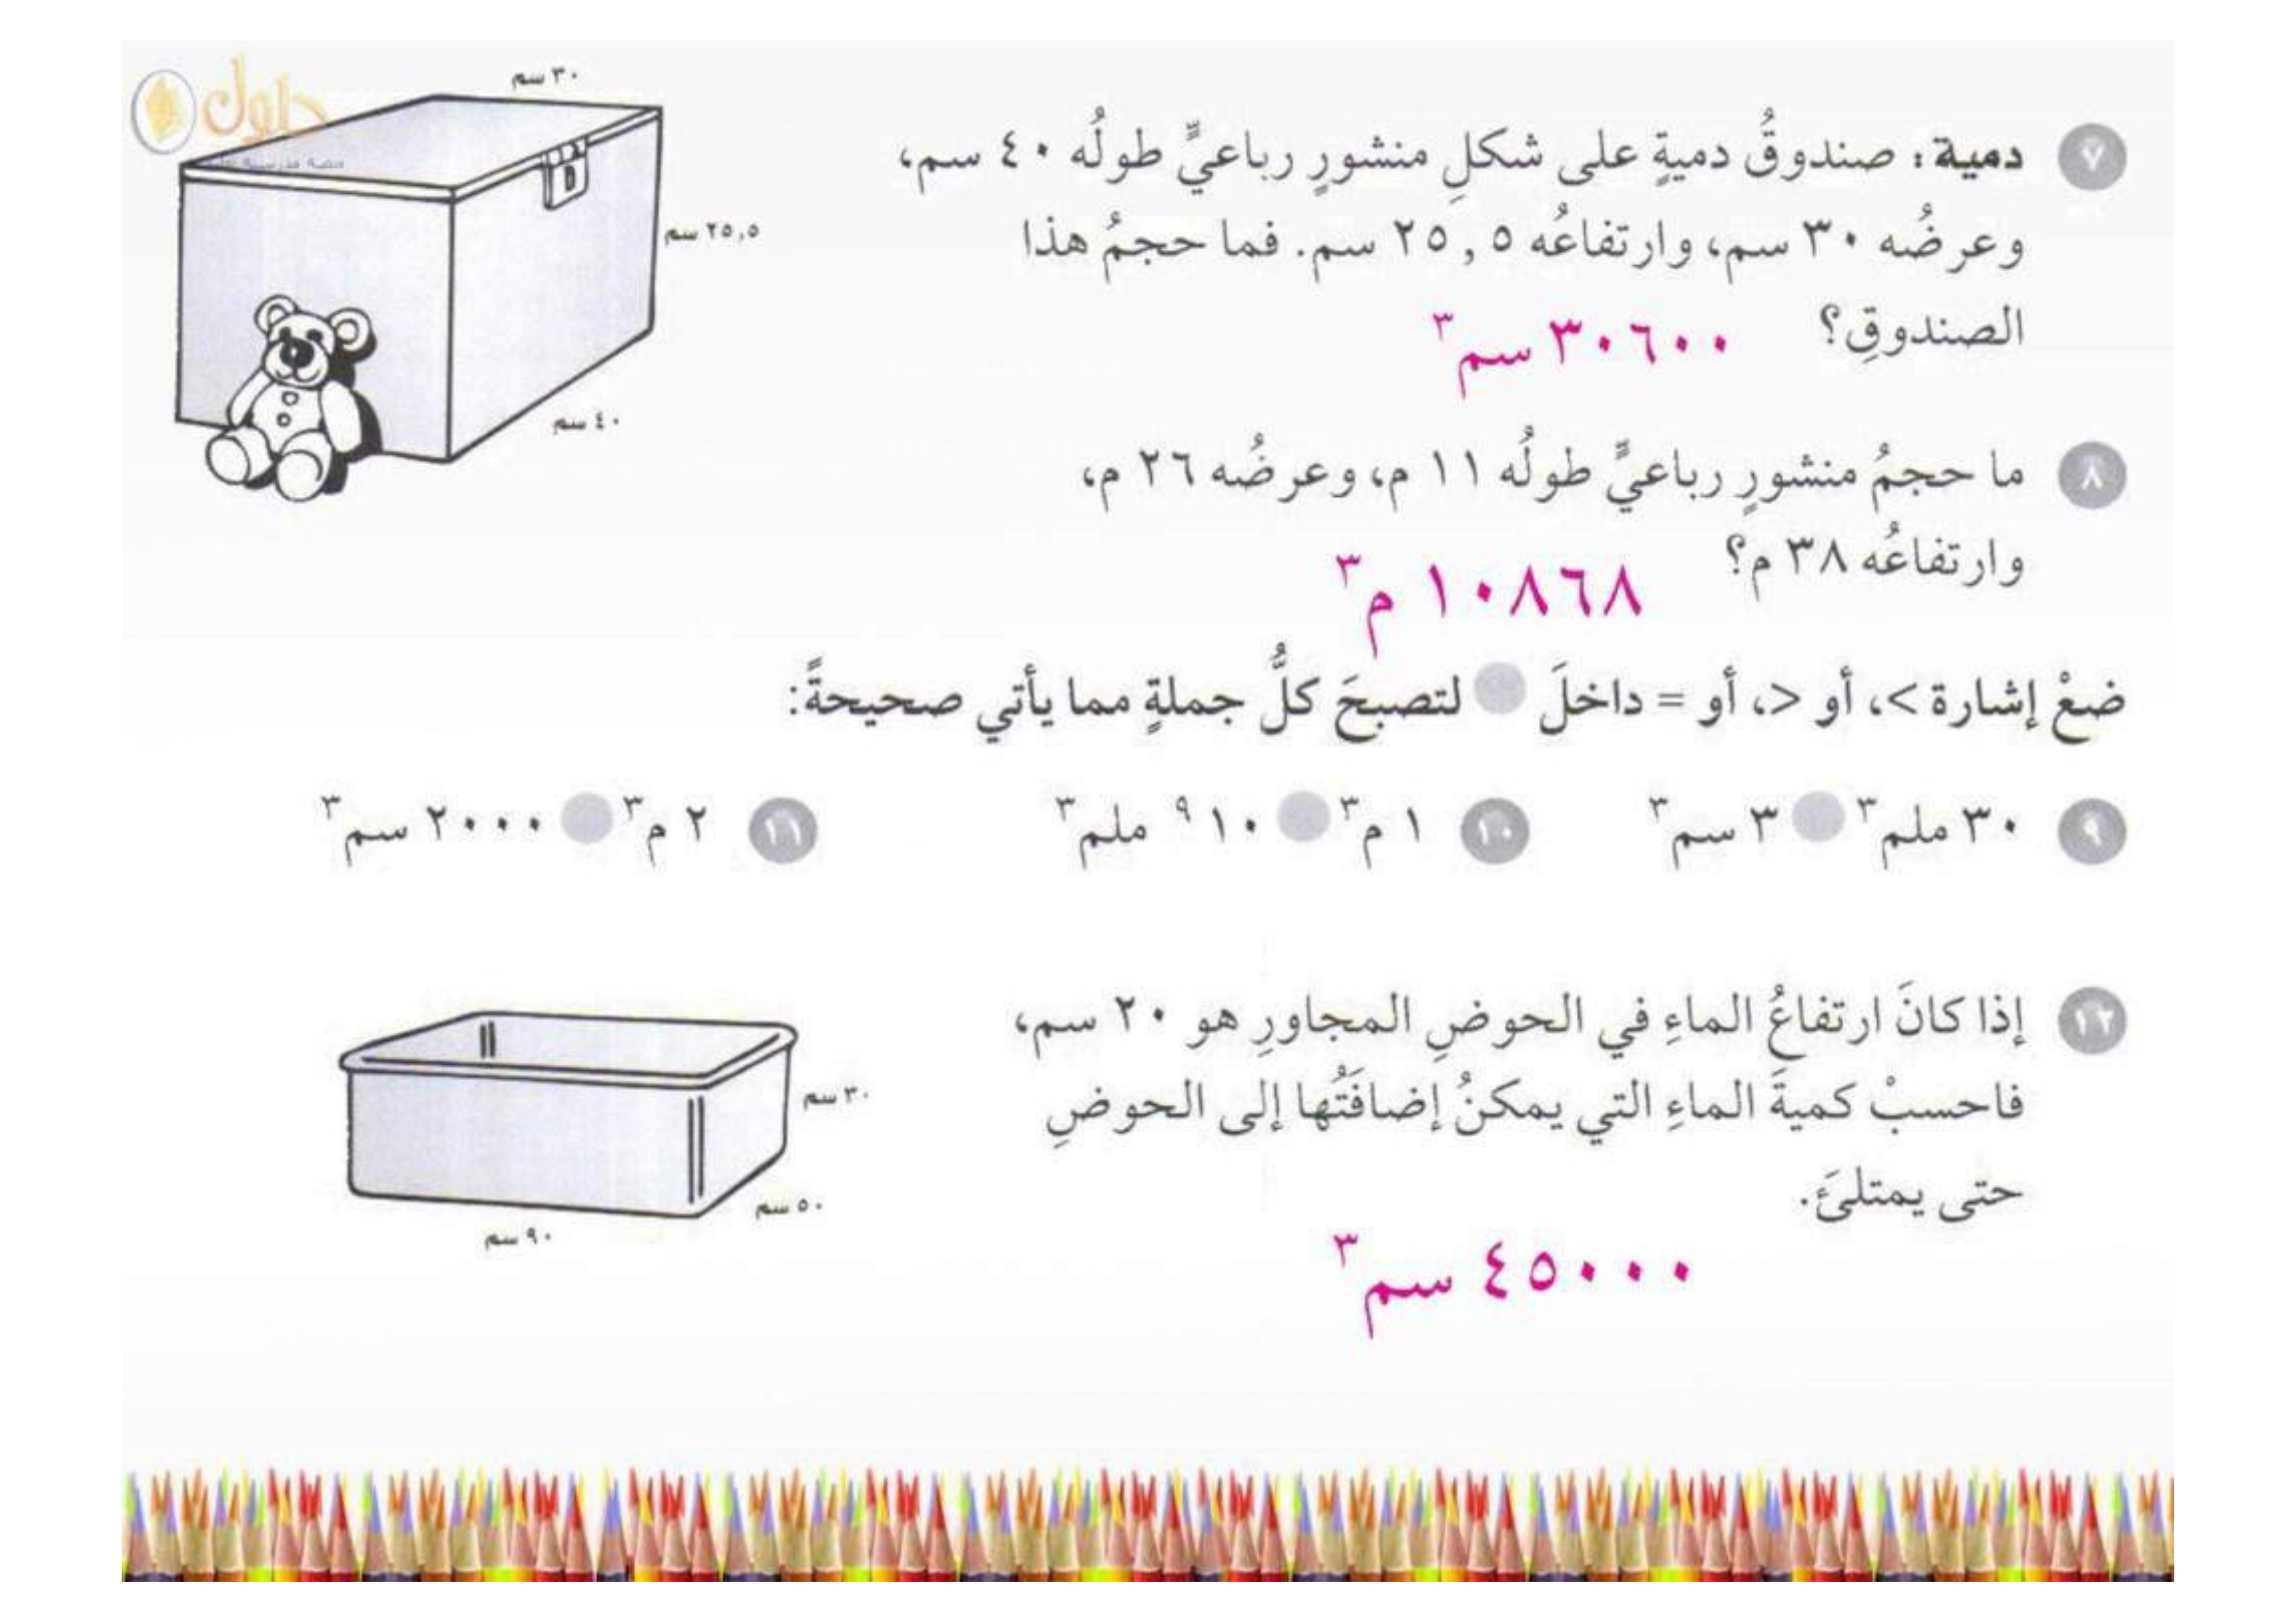 حلول
٣٠ سم
٧ دمية: صندوقُ دميةٍ على شكلِ منشورٍ رباعيٍّ طولُه ٤٠ سم،
وعرضُه ٣٠ سم، وارتفاعُه ٢٥,٥ سم. فما حجمُ هذا
الصندوقِ؟ ٣٠٦٠٠ سم٣
٢٥,٥ سم
٤٠ سم
٨ ما حجمُ منشورٍ رباعيٍّ طولُه ١١ م، وعرضُه ٢٦ م،
وارتفاعُه ٣٨ م؟ ١٠٨٦٨ م٣
ضعْ إشارة >، أو <، أو = داخلَ لتصبحَ كلُّ جملةٍ مما يأتي صحيحةً:
٩ ٣٠ ملم٣ ٣ سم٣ ١٠ ١ م٣ ١٠٩ ملم٣ ١١ ٢ م٣ ٢٠٠٠ سم٣
١٢ إذا كانَ ارتفاعُ الماءِ في الحوضِ المجاورِ هو ٢٠ سم،
فاحسبْ كميةَ الماءِ التي يمكنُ إضافَتُها إلى الحوضِ
حتى يمتلئَ.
٣٠ سم
٥٠ سم
٩٠ سم
٤٥٠٠٠ سم٣